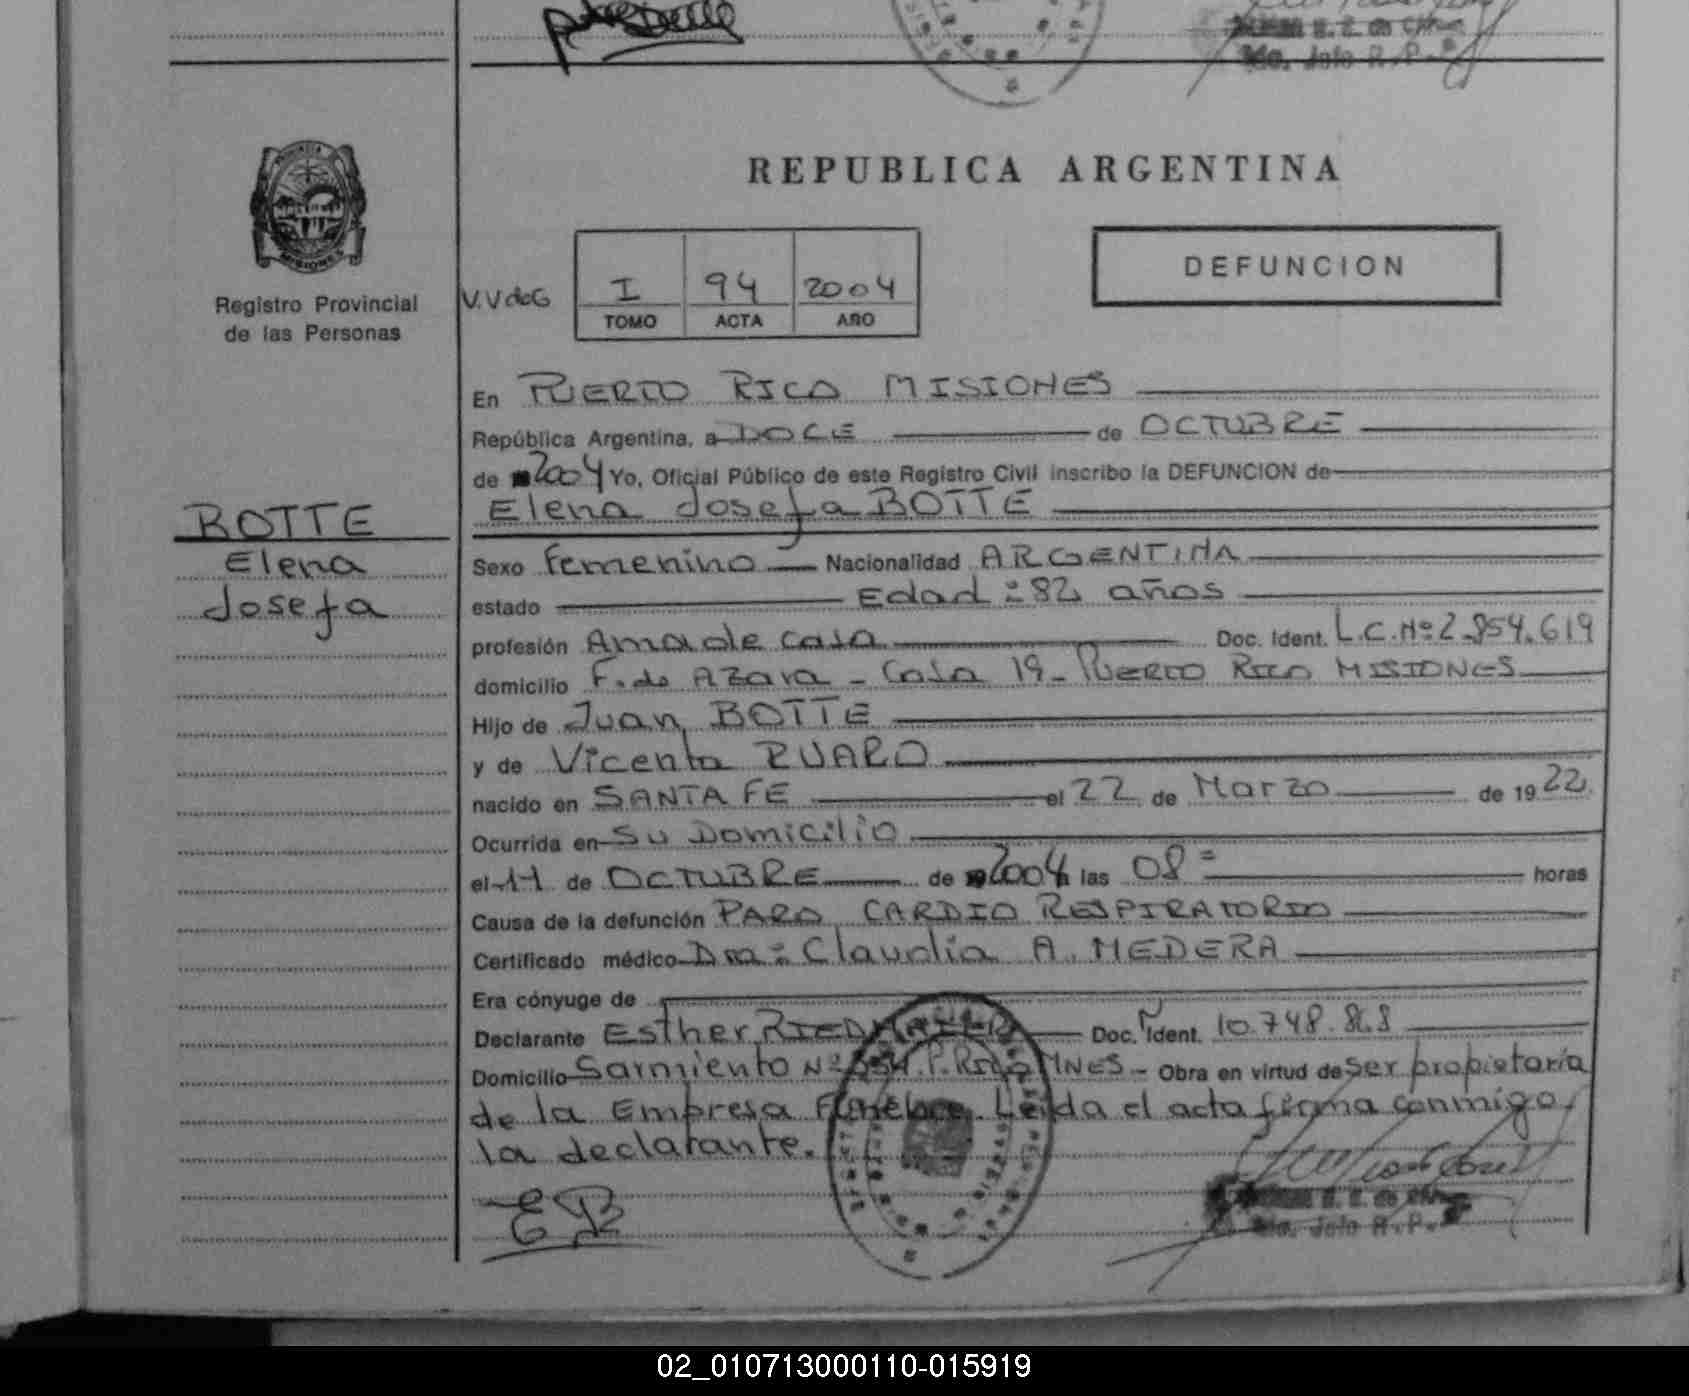 REPUBLICA ARGENTINA
PROVINCIA
MISIONES
Registro Provincial
de las Personas
V.V de G
I 94 2004
TOMO ACTA AÑO
DEFUNCION
En PUERTO RICO MISIONES
República Argentina, a DOCE de OCTUBRE
de 2004 Yo, Oficial Público de este Registro Civil inscribo la DEFUNCION de
Elena Josefa BOTTE
BOTTE
Elena
Josefa
Sexo Femenino Nacionalidad ARGENTINA
estado Edad: 82 años
profesión Ama de casa Doc. Ident. L.C.Nº 2.954.619
domicilio F. de AZARA - Casa 19 - PUERTO RICO MISIONES
Hijo de Juan BOTTE
y de Vicenta RUARO
nacido en SANTA FE el 22 de Marzo de 1922
Ocurrida en Su Domicilio
el 11 de OCTUBRE de 2004 a las 08 horas
Causa de la defunción PARO CARDIO RESPIRATORIO
Certificado médico Dra: Claudia A. MEDERA
Era cónyuge de
Declarante Esther RIEDMAIER Doc. Ident. 10.748.
Domicilio Sarmiento Nº P. Rico MNES - Obra en virtud de ser propietaria
de la Empresa Fúnebre. Leída el acta firma conmigo
la declarante.
EB
Jefe R.P.
02_010713000110-015919